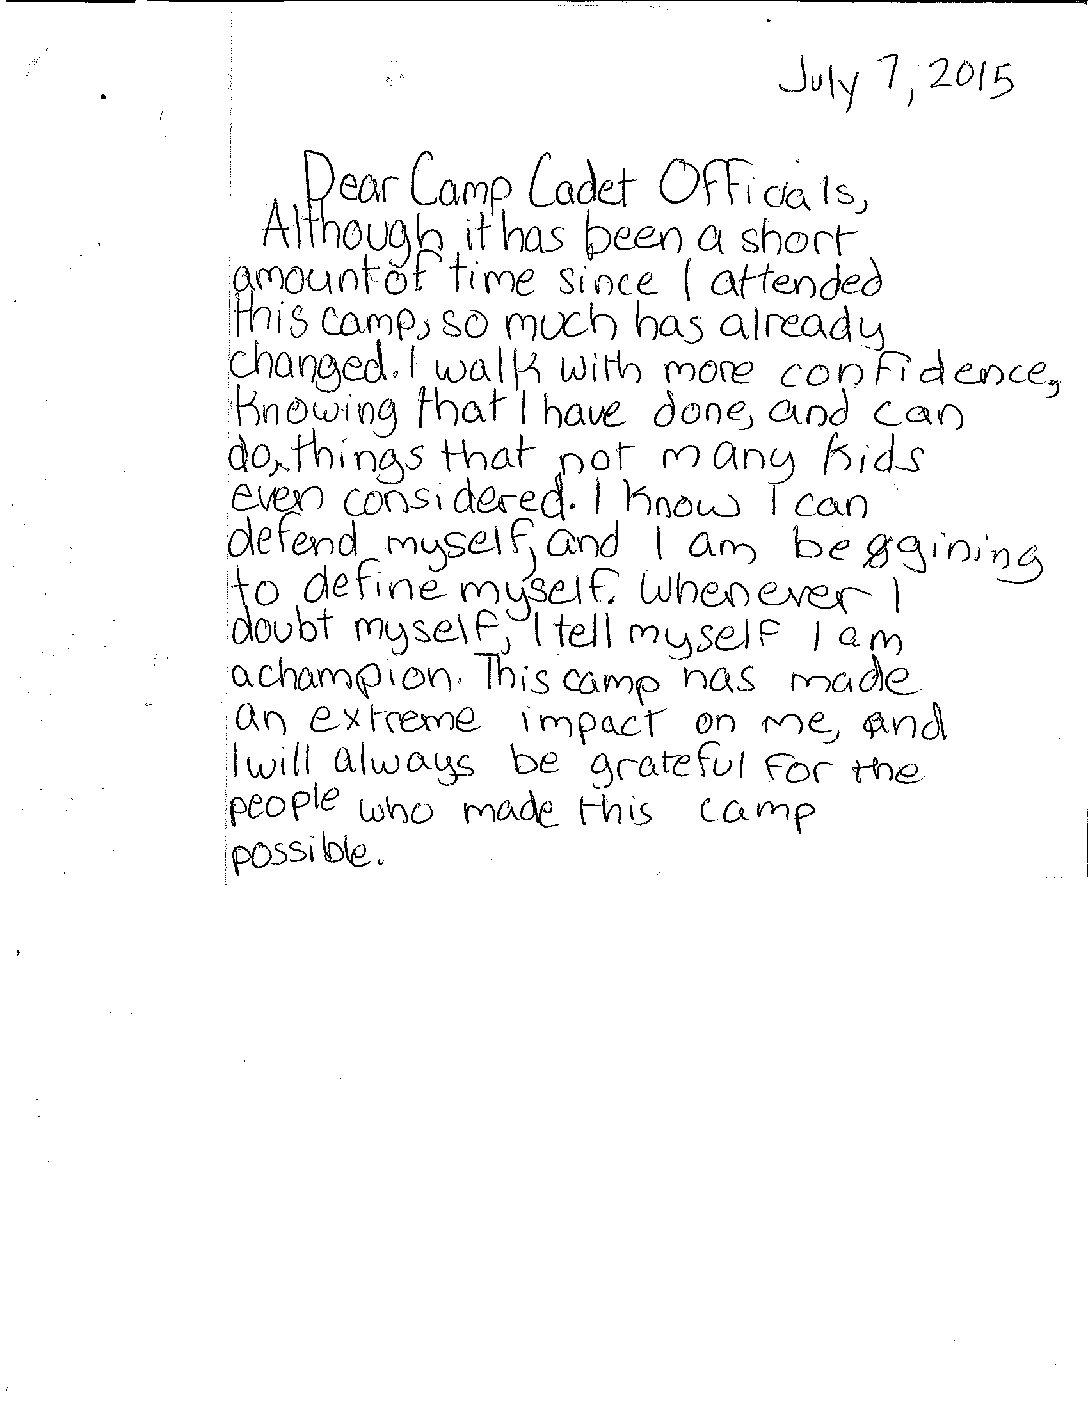 July 7, 2015
Dear Camp Cadet Officials,
Although it has been a short
amount of time since I attended
this camp, so much has already
changed. I walk with more confidence,
knowing that I have done, and can
do, things that not many kids
even considered. I know I can
defend myself, and I am beggining
to define myself. Whenever I
doubt myself, I tell myself I am
a champion. This camp has made
an extreme impact on me, and
I will always be grateful for the
people who made this camp
possible.